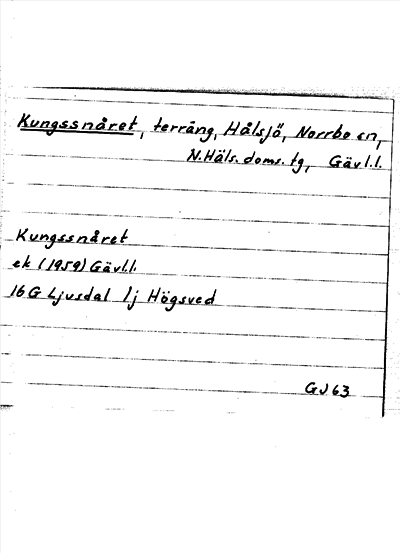 Kungssnåret, terräng, Hålsjö, Norrbo sn,
N.Häls. doms. tg, Gävl.l.
Kungssnåret
ek (1959) Gävl.l.
16 G Ljusdal 1j Högsved
GJ 63